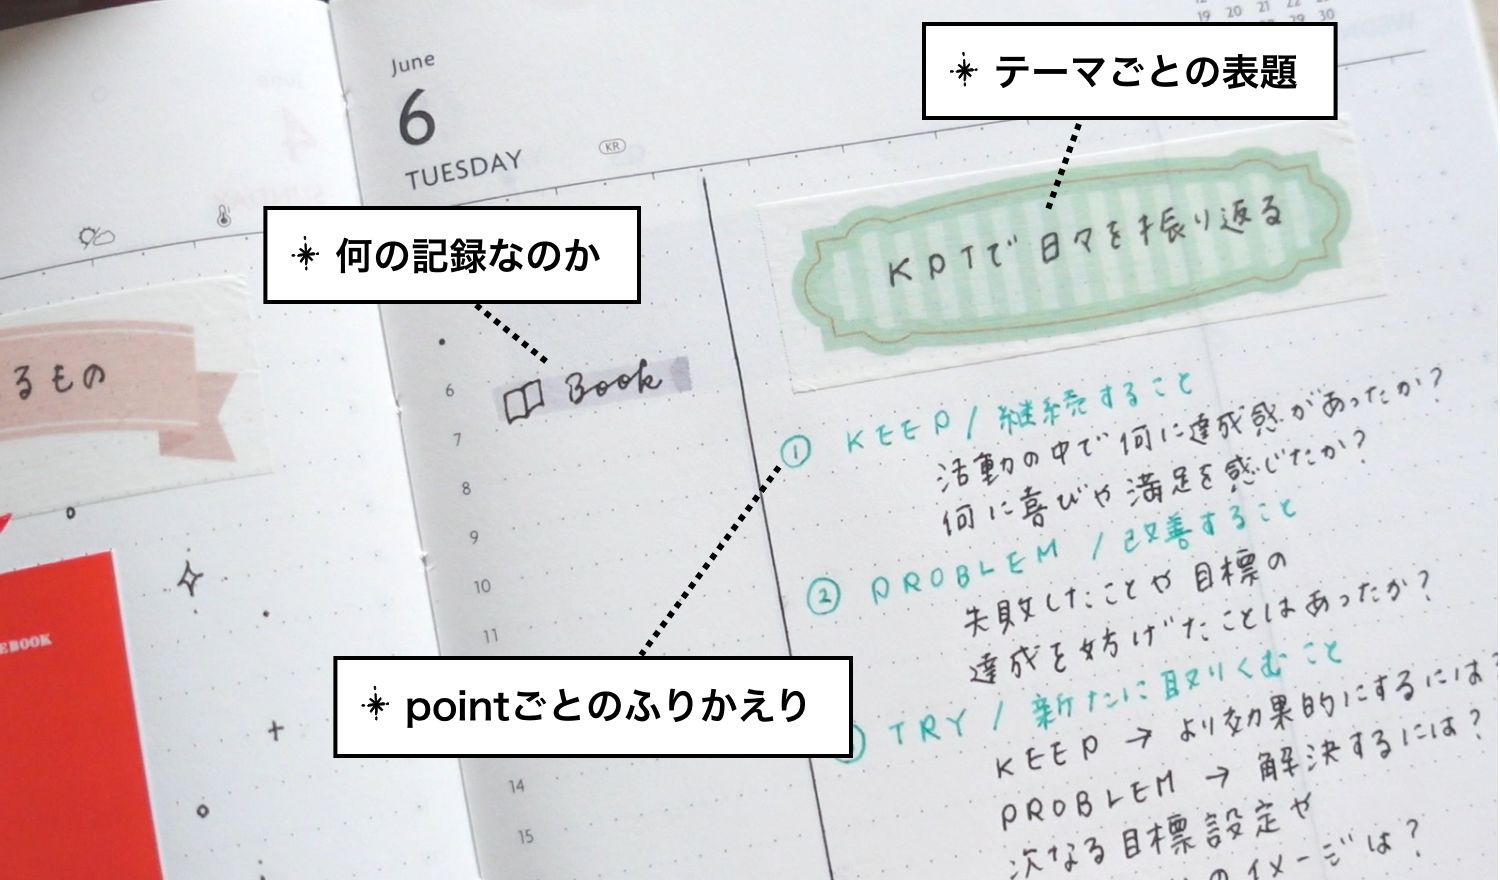 19 20 21 22 23
29 30
June
6
TUESDAY
KR
テーマごとの表題
何の記録なのか
KPTで日々を振り返る
るもの
Book
6
7
8
9
10
11
14
15
EBOOK
pointごとのふりかえり
① KEEP / 継続すること
活動の中で何に達成感があったか?
何に喜びや満足を感じたか?
② PROBLEM / 改善すること
失敗したことや目標の
達成を妨げたことはあったか?
TRY / 新たに取りくむこと
KEEP → より効果的にするには?
PROBLEM → 解決するには?
次なる目標設定や
のイメージは?